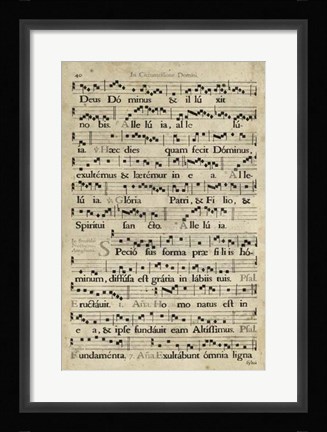 40 In Circumcisione Domini.
Deus Dó minus & il lú xit
no bis. Alle lú ia, al le lú-
ia. ℣. Hæc dies quam fecit Dóminus,
exultémus & lætémur in e a. Alle-
lú ia. ℣. Glória Patri, & Fi lio, &
Spiritui san cto. Alle lú ia.
SPeció sus forma præ fi li is hó-
minum, diffúsa est grátia in lábiis tuis. Psal.
Eructávit. Aña. Ho mo natus est in
e a, & ipse fundávit eam Altíssimus. Psal.
Fundaménta. 7. Aña. Exultábunt ómnia ligna